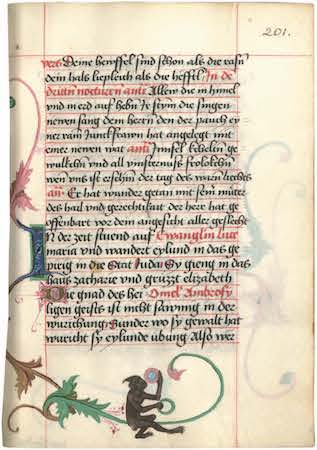 201.
vers Deine henffel sind schon als die rasn
dein hals liepleich als die heffel In de
dritn nocturn antn Allew die in himel
vnd in erd auf hebn ir stym die singen
newen sang dem herrn den der pauch ey
ner rain Junckfrawn hat angelegt mit
einer newen wat antn
wulckhn vnd all vinsternuss frolokchn
wen vns ist erschin der tag des warn liechts
an Er hat wunder getan mit sein müter
des hail vnd gerechtikait der herr hat ge
offenbart vor dem angesicht aller geslecht
IN der zeit stuend auf Ewanglin luce
maria vnd wandert eylund in das ge
pirig in die Stat Juda Sy gieng in das
haus zacharie vnd gruzzt elizabeth
Die gnad des hei Omel Ambrosy
ligen geists ist nicht sawmig in der
wurchung Sunder wo sy gewalt hat
wurcht sy eylunde übung Also wer